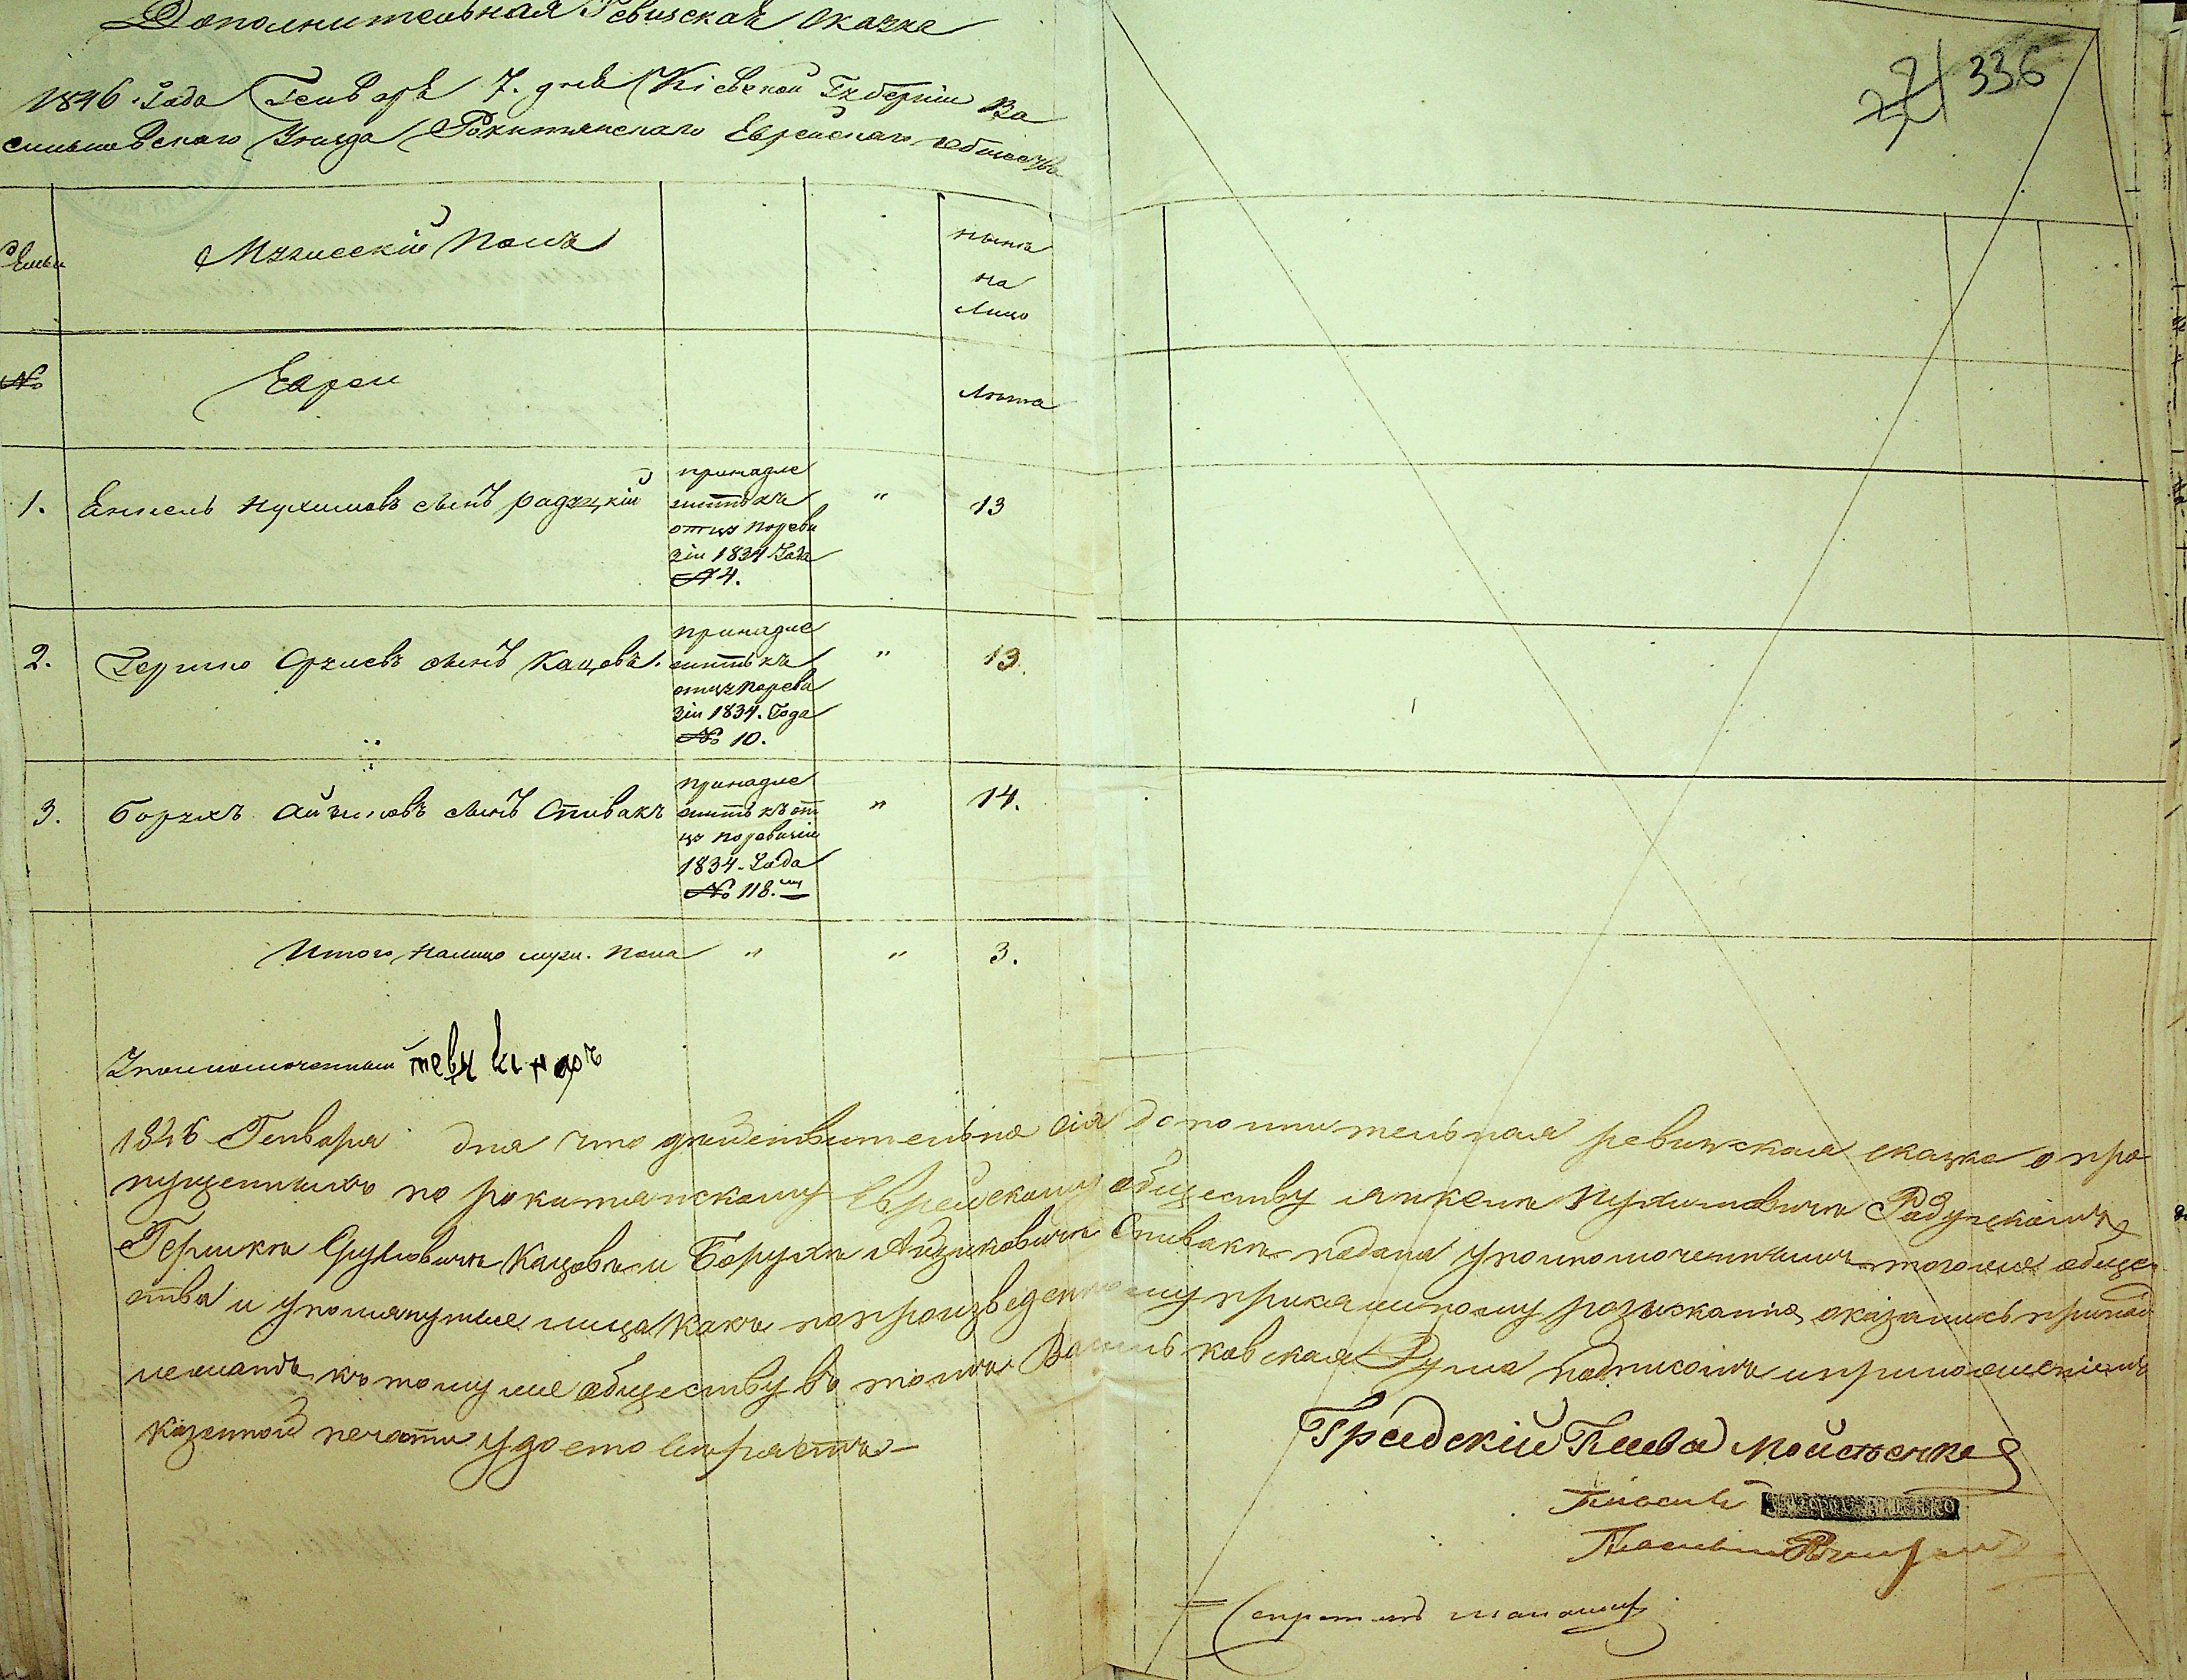 Дополнительная Ревизская Сказка
1846 Года Генваря 7. дня Кіевской Губерніи Ва
сильковскаго Уезда Рокитянскаго Еврейскаго общества
27 336
Мужескій Полъ
ныне
на
лицо
№
Евреи
лета
1. Енкель Нухимовъ сынъ Радуцкій
принадле
житъ къ
отцу пореви
зіи 1834 Года
№ 4.
" 13
2. Гершко Сруліевъ сынъ Кацовъ.
принадле
житъ къ
отцу пореви
зіи 1834. Года
№ 10.
" 13.
3. Борухъ Айзиковъ сынъ Спивакъ
принадле
житъ къ от
цу поревизіи
1834. Года
№ 118.
" 14.
Итого налицо муж. пола " " 3.
Уполномоченный
1846 Генваря дня что действительно сія дополнительная ревизская сказка о про
пущенныхъ по рокитянскому Еврейскому обществу Янкеле Нухимовиче Радуцкомъ
Гершке Сруловиче Кацове и Борухе Айзиковиче Спиваке подана уполномоченнымъ того же общес
тва и упомянутые лица какъ по произведенному розысканію оказались принад
лежатъ къ тому же обществу въ томъ Васильковская Дума подписомъ и приложеніемъ
казенной печати удостоверяетъ
Градскій Глава Мойсеенко
Гласный
Гласный
Секретарь